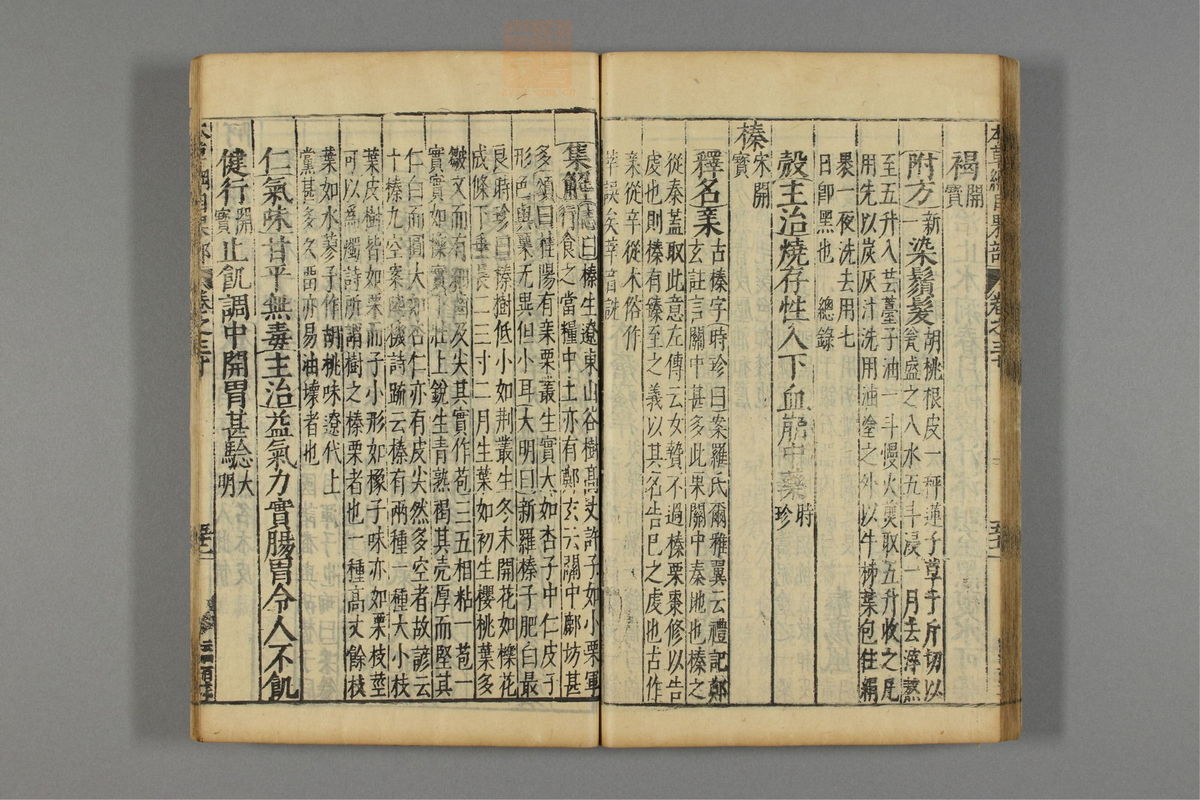 褐開寶
附方新一染鬚髮胡桃根皮一秤蓮子草十斤切以
瓮盛之入水五斗浸一月去滓熬
至五升入芸薹子油一斗慢火煎取五升收之凡
用先以炭灰汁洗用油塗之外以牛柹葉包住絹
裹一夜洗去用七
日卽黑也 總錄
殼主治燒存性入下血崩中藥時珍
榛宋開寶
釋名亲古榛字時珍曰案羅氏爾雅翼云禮記鄭
玄註言關中甚多此果關中秦地也榛之
從秦蓋取此意左傳云女贄不過榛栗棗修以告
虔也則榛有臻至之義以其名告己之虔也古作
亲從辛從木俗作
莘誤矣莘音詵
集解志曰榛生遼東山谷樹高丈許子如小栗軍
行食之當糧中土亦有鄭玄云關中鄜坊甚
多頌曰桂陽有亲栗叢生實大如杏子中仁皮子
形色與栗无異但小耳大明曰新羅榛子肥白最
良時珍曰榛樹低小如荆叢生冬末開花如櫟花
成條下垂長二三寸二月生葉如初生櫻桃葉多
皺文而有細齒及尖其實作苞三五相粘一苞一
實實如櫟實下壯上銳生青熟褐其壳厚而堅其
仁白而圓大如杏仁亦有皮尖然多空者故諺云
十榛九空案陸機詩疏云榛有兩種一種大小枝
葉皮樹皆如栗而子小形如橡子味亦如栗枝莖
可以爲燭詩所謂樹之榛栗者也一種高丈餘枝
葉如水蓼子作胡桃味遼代上
黨甚多久畱亦易油壞者也
仁氣味甘平無毒主治益氣力實腸胃令人不飢
健行開寶止飢調中開胃甚驗大明